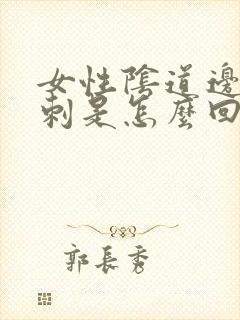 女性陰道邊
刺是怎麼回
郭長秀